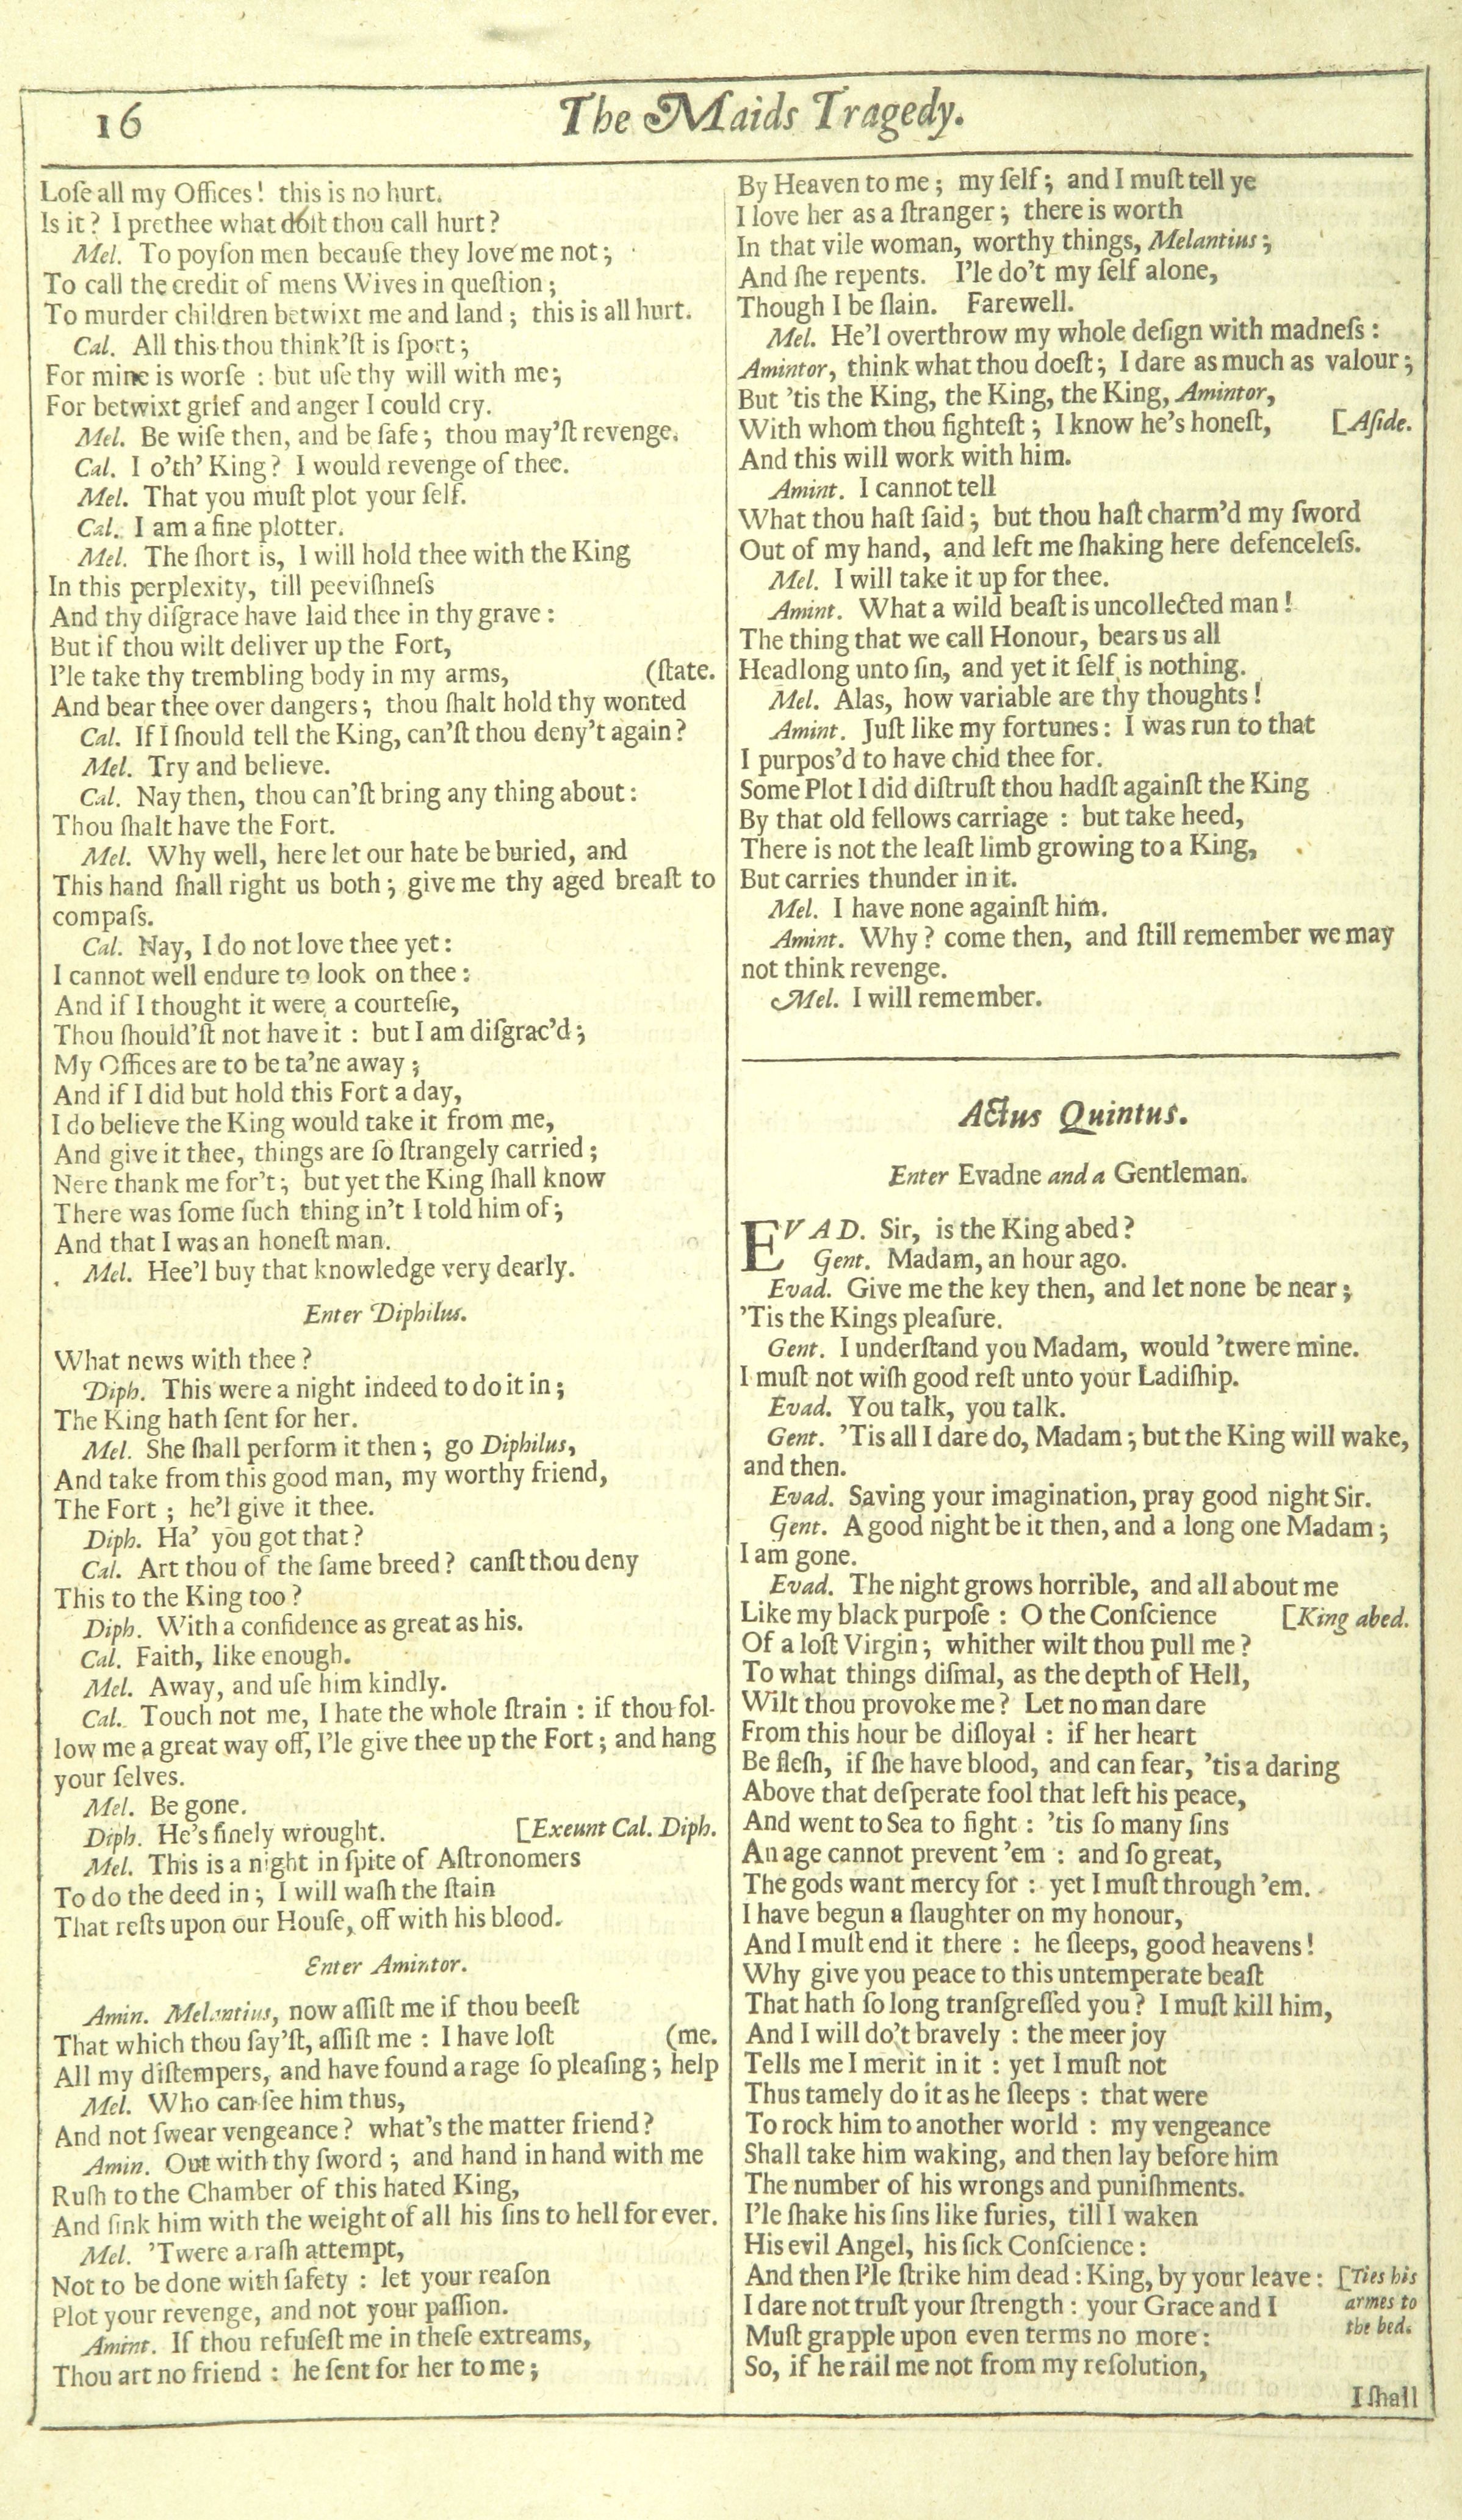 16
The Maids Tragedy.
Loſe all my Offices! this is no hurt.
Is it? I prethee what doſt thou call hurt?
Mel. To poyſon men becauſe they love me not;
To call the credit of mens Wives in queſtion;
To murder children betwixt me and land; this is all hurt.
Cal. All this thou think'ſt is ſport;
For mine is worſe: but uſe thy will with me;
For betwixt grief and anger I could cry.
Mel. Be wiſe then, and be ſafe; thou may'ſt revenge.
Cal. I o'th' King? I would revenge of thee.
Mel. That you muſt plot your ſelf.
Cal. I am a fine plotter.
Mel. The ſhort is, I will hold thee with the King
In this perplexity, till peeviſhneſs
And thy diſgrace have laid thee in thy grave:
But if thou wilt deliver up the Fort,
I'le take thy trembling body in my arms, (ſtate.
And bear thee over dangers; thou ſhalt hold thy wonted
Cal. If I ſhould tell the King, can'ſt thou deny't again?
Mel. Try and believe.
Cal. Nay then, thou can'ſt bring any thing about:
Thou ſhalt have the Fort.
Mel. Why well, here let our hate be buried, and
This hand ſhall right us both; give me thy aged breaſt to
compaſs.
Cal. Nay, I do not love thee yet:
I cannot well endure to look on thee:
And if I thought it were a courteſie,
Thou ſhould'ſt not have it: but I am diſgrac'd;
My Offices are to be ta'ne away;
And if I did but hold this Fort a day,
I do believe the King would take it from me,
And give it thee, things are ſo ſtrangely carried;
Nere thank me for't; but yet the King ſhall know
There was ſome ſuch thing in't I told him of;
And that I was an honeſt man.
Mel. Hee'l buy that knowledge very dearly.
Enter Diphilus.
What news with thee?
Diph. This were a night indeed to do it in;
The King hath ſent for her.
Mel. She ſhall perform it then; go Diphilus,
And take from this good man, my worthy friend,
The Fort; he'l give it thee.
Diph. Ha' you got that?
Cal. Art thou of the ſame breed? canſt thou deny
This to the King too?
Diph. With a confidence as great as his.
Cal. Faith, like enough.
Mel. Away, and uſe him kindly.
Cal. Touch not me, I hate the whole ſtrain: if thou fol-
low me a great way off, I'le give thee up the Fort; and hang
your ſelves.
Mel. Be gone.
Diph. He's finely wrought. [Exeunt Cal. Diph.
Mel. This is a night in ſpite of Aſtronomers
To do the deed in; I will waſh the ſtain
That reſts upon our Houſe, off with his blood.
Enter Amintor.
Amin. Melantius, now aſſiſt me if thou beeſt
That which thou ſay'ſt, aſſiſt me: I have loſt (me.
All my diſtempers, and have found a rage ſo pleaſing; help
Mel. Who can ſee him thus,
And not ſwear vengeance? what's the matter friend?
Amin. Out with thy ſword; and hand in hand with me
Ruſh to the Chamber of this hated King,
And ſink him with the weight of all his ſins to hell for ever.
Mel. 'Twere a raſh attempt,
Not to be done with ſafety: let your reaſon
Plot your revenge, and not your paſſion.
Amint. If thou refuſeſt me in theſe extreams,
Thou art no friend: he ſent for her to me;
By Heaven to me; my ſelf; and I muſt tell ye
I love her as a ſtranger; there is worth
In that vile woman, worthy things, Melantius;
And ſhe repents. I'le do't my ſelf alone,
Though I be ſlain. Farewell.
Mel. He'l overthrow my whole deſign with madneſs:
Amintor, think what thou doeſt; I dare as much as valour;
But 'tis the King, the King, the King, Amintor,
With whom thou fighteſt; I know he's honeſt, [Aſide.
And this will work with him.
Amint. I cannot tell
What thou haſt ſaid; but thou haſt charm'd my ſword
Out of my hand, and left me ſhaking here defenceleſs.
Mel. I will take it up for thee.
Amint. What a wild beaſt is uncollected man!
The thing that we call Honour, bears us all
Headlong unto ſin, and yet it ſelf is nothing.
Mel. Alas, how variable are thy thoughts!
Amint. Juſt like my fortunes: I was run to that
I purpos'd to have chid thee for.
Some Plot I did diſtruſt thou hadſt againſt the King
By that old fellows carriage: but take heed,
There is not the leaſt limb growing to a King,
But carries thunder in it.
Mel. I have none againſt him.
Amint. Why? come then, and ſtill remember we may
not think revenge.
Mel. I will remember.
Actus Quintus.
Enter Evadne and a Gentleman.
EVAD. Sir, is the King abed?
Gent. Madam, an hour ago.
Evad. Give me the key then, and let none be near;
'Tis the Kings pleaſure.
Gent. I underſtand you Madam, would 'twere mine.
I muſt not wiſh good reſt unto your Ladiſhip.
Evad. You talk, you talk.
Gent. 'Tis all I dare do, Madam; but the King will wake,
and then.
Evad. Saving your imagination, pray good night Sir.
Gent. A good night be it then, and a long one Madam;
I am gone.
Evad. The night grows horrible, and all about me
Like my black purpoſe: O the Conſcience [King abed.
Of a loſt Virgin; whither wilt thou pull me?
To what things diſmal, as the depth of Hell,
Wilt thou provoke me? Let no man dare
From this hour be diſloyal: if her heart
Be fleſh, if ſhe have blood, and can fear, 'tis a daring
Above that deſperate fool that left his peace,
And went to Sea to fight: 'tis ſo many ſins
An age cannot prevent 'em: and ſo great,
The gods want mercy for: yet I muſt through 'em.
I have begun a ſlaughter on my honour,
And I muſt end it there: he ſleeps, good heavens!
Why give you peace to this untemperate beaſt
That hath ſo long tranſgreſſed you? I muſt kill him,
And I will do't bravely: the meer joy
Tells me I merit in it: yet I muſt not
Thus tamely do it as he ſleeps: that were
To rock him to another world: my vengeance
Shall take him waking, and then lay before him
The number of his wrongs and puniſhments.
I'le ſhake his ſins like furies, till I waken
His evil Angel, his ſick Conſcience:
And then I'le ſtrike him dead: King, by your leave: [Ties his
I dare not truſt your ſtrength: your Grace and I armes to
Muſt grapple upon even terms no more: the bed.
So, if he rail me not from my reſolution,
I ſhall